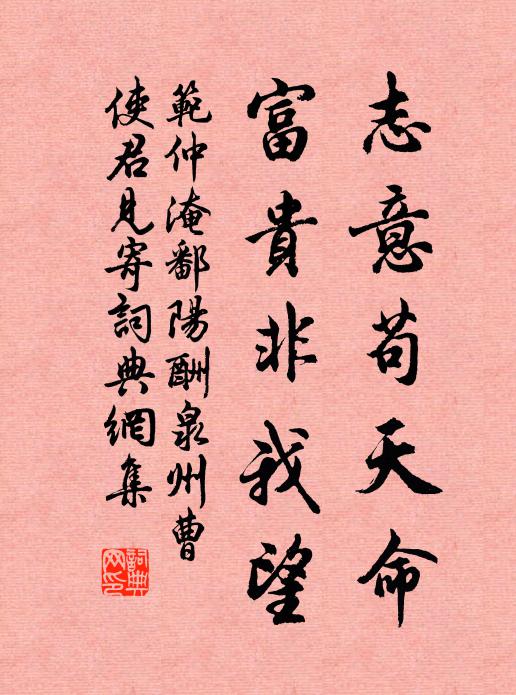 志意苟天命
富貴非我望
範仲淹鄱陽酬泉州曹
使君見寄詞典網集
詞典網印